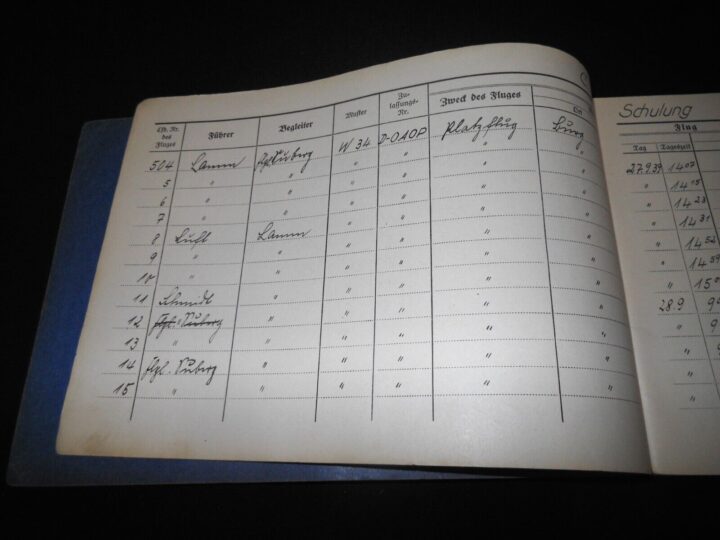 Lfd. Nr. des Fluges Führer Begleiter Muster Zu- lassungs- Nr. Zweck des Fluges Ort
504 Lamm W 34 D-OAOP Platzflug Burg
5 " " " " " "
6 " " " " " "
7 " " " " " "
8 Lamm " " " "
9 " " " " " "
10 " " " " " "
11 Schmidt " " " " "
12 " " " " "
13 " " " " " "
14 " " " " "
15 " " " " " "
Schulung
Flug
Tag Tageszeit
27.9.39 14 07
" 14 15
" 14 23
" 14 31
" 14 52
" 14 59
" 15
28.9 9
" 9
" 9
" 9
" 9